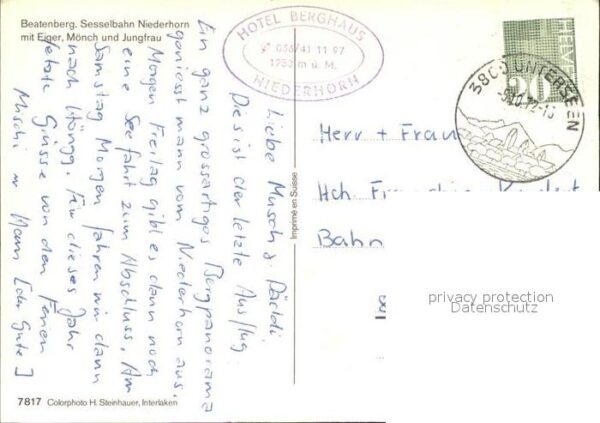 Beatenberg. Sesselbahn Niederhorn
mit Eiger, Mönch und Jungfrau
HOTEL BERGHAUS
036/41 11 97
1950 m ü. M.
NIEDERHORN
HELVETIA
20
3800 UNTERSEEN
Liebe
Dies ist der letzte Ausflug.
Ein ganz grossartiges Bergpanorama
geniesst mann vom Niederhorn aus.
Morgen Freitag gibt es dann noch
eine Seefahrt zum Abschluss. Am
Samstag Morgen fahren wir dann
nach Höngg. Für dieses Jahr
letzte Grüsse von den Ferien
Mann (der Gute)
Imprimé en Suisse
Herr + Frau
Hch.
Bahn
privacy protection
Datenschutz
7817 Colorphoto H. Steinhauer, Interlaken